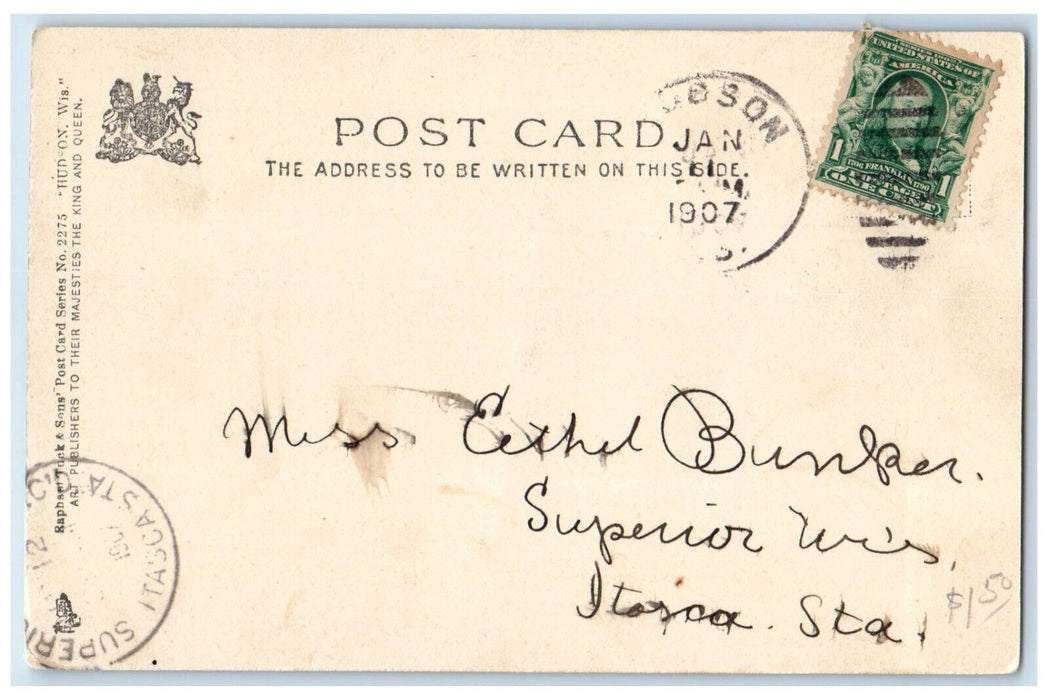 POST CARD
THE ADDRESS TO BE WRITTEN ON THIS SIDE.
Raphael Tuck & Sons' Post Card Series No. 2275 "HUDSON, Wis."
ART PUBLISHERS TO THEIR MAJESTIES THE KING AND QUEEN.
JAN
1907
SERIES 1902
UNITED STATES OF
AMERICA
1 1706 FRANKLIN 1790 1
POSTAGE
ONE CENT
Miss Eethel Bunker.
Superior Wis,
Itasca. Sta.
$1.50
ITASCA STA
12
SUPERI